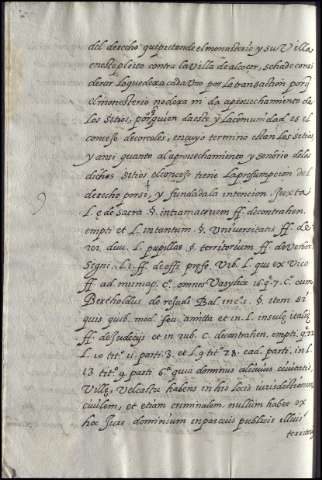 del derecho que pretende el monasterio y su Villa
en este pleito contra la Villa de alcoçer, se ha de consi
derar lo que dexa cada vno por la transaction porq
el monasterio no dexa m da aprouechamiento de
los sitios, porq quien da este y la comunidad es el
concejo de corcoles, en cuyo termino estan los sitios
y ansi quanto al aprouechamiento y señorio delos
dichos sitios el concejo tiene la presumpcion del
derecho por si, y fundada la intencion, juxta
L. ea Sacra §. intra maceriem ff. de contrahen.
empti et L. in tantum. §. Vniuersitatis ff. de re.
diui. L. pupillus §. territorium ff. de verbor.
Segni. L. 1. ff. de offi. prefe. vrb. L. qui ex vico
ff. ad munap. C. omnes Vasilice 16. q. 7. C. cum
Bertholdus de re judi. Bal. in c. 1. §. item si
quis sub. mod. feu. amitta et in L. insule italie
ff. de Judicijs et in rub. C. de contrahen. empti.
L. 10 titº 11. parti. 3. et L. 9 titº 28. ead. parti. in L.
13. titº 9. parti. 6ª quia dominus alicuius ciuitatis,
Ville, vel castri habens in his locis iurisdictionem
ciuilem, et etiam criminalem nullum habet ex
hoc Jure dominium in pascuis publicis illius